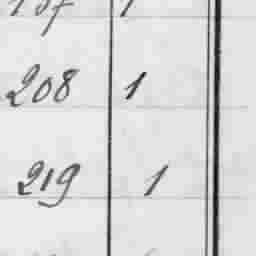 208 1
219 1